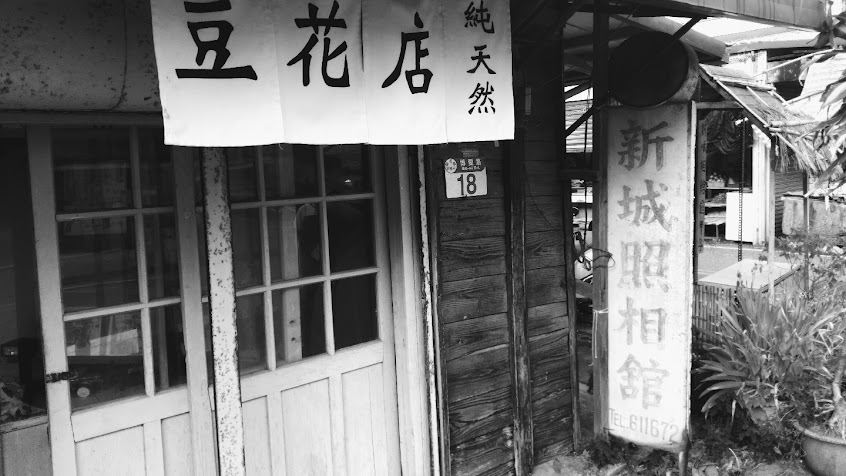 豆花店
純天然
18
新城照相舘
TEL.611672